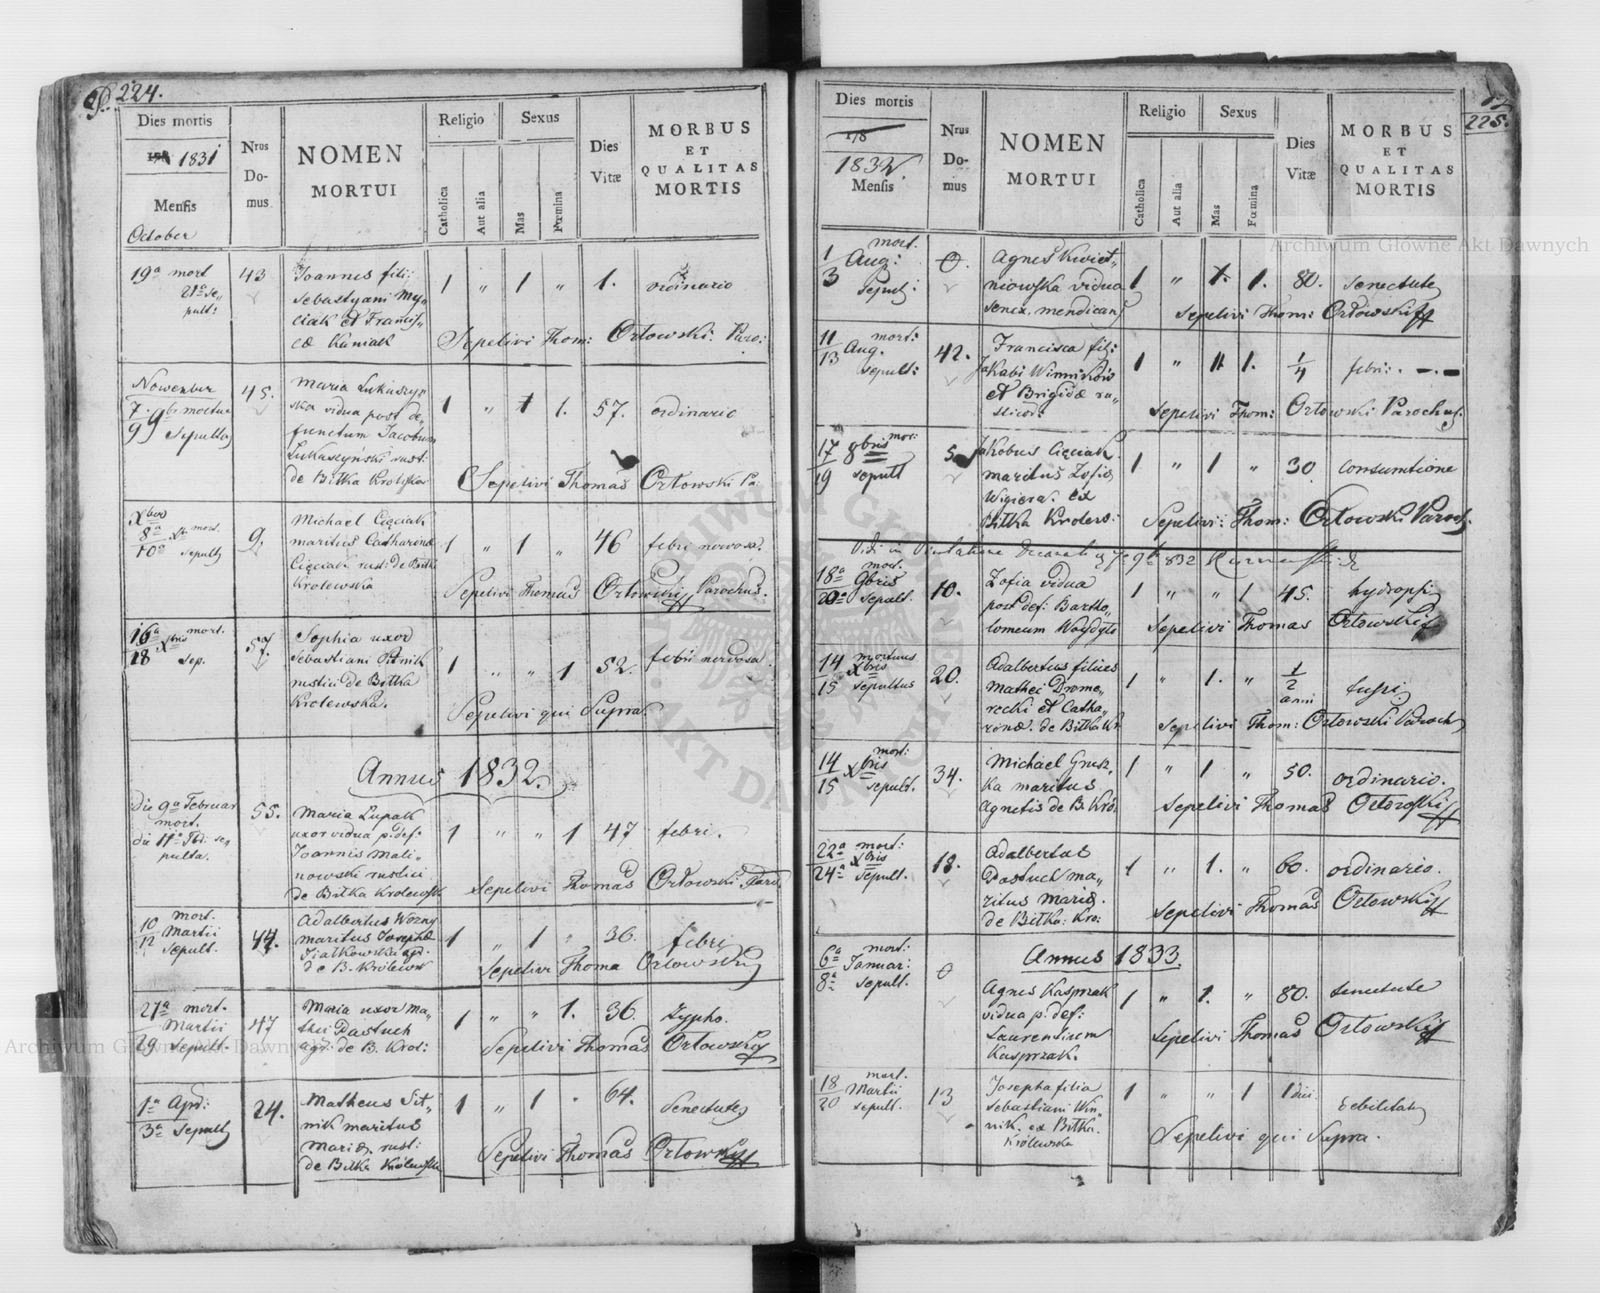 224.
Dies mortis
1831
Mensis
October
Nrus Domus
NOMEN
MORTUI
Religio
Catholica
Aut alia
Sexus
Mas
Fœmina
Dies
Vitæ
MORBUS
ET
QUALITAS
MORTIS
19a mort
21a se„
pult:
43
Joannes fili:
Sebastyani My„
ciak et Francis„
cæ Kuniak
1 „ 1 „ 1. ordinario
Sepelivi Thom: Orłowski. Paro:
November
7. 9br mortua
9 Sepulta
45.
Maria Lukaszyń
ska vidua post de„
functum Jacobum
Lukaszyński rust.
de Bitka Krolewska
1 „ 1 1. 57. ordinario
Sepelivi Thomas Orłowski Pa:
Xbris
8a mort.
10a sepult
9.
Michael Cięciak
maritus Catharinæ
Cięciak rust: de Bitka
Krolewska
1 „ 1 „ 46 febri nervosa.
Sepelivi Thomas Orłowski Parochus.
16a Xbris mort.
18 sep.
57.
Sophia uxor
Sebastiani Sitnik
rustici de Bitka
Krolewska.
1 „ „ 1 52. febri nervosa.
Sepelivi qui Supra.
Annus 1832.
die 9a Februar
mort.
die 11a Feb: se„
pulta.
55.
Maria Lupak
uxor vidua p. def:
Joannis Mali„
nowski rustici
de Bitka Krolewsk
1 „ „ 1 47 febri.
Sepelivi Thomas Orłowski Paro.
10 mort.
Martii
12 sepult.
44.
Adalbertus Wozny
maritus Josephæ
Fiałkowski agr.
de B. Królews
1 „ 1 „ 36. febri
Sepelivi Thoma Orłowski
27a mort.
Martii
29 sepult.
47
Maria uxor Ma„
thei Dastuch
agr: de B. Krol:
1 „ „ 1. 36. typho.
Sepelivi Thomas Orłowski
1a Apr:
3a sepult
24.
Matheus Sit„
nik maritus
Mariæ rust:
de Bitka Królewska
1 „ 1 „ 64. Senectute
Sepelivi Thomas Orłowski
225.
Dies mortis
178
1832.
Mensis
Nrus
Do-
mus
NOMEN
MORTUI
Religio
Catholica
Aut alia
Sexus
Mas
Fœmina
Dies
Vitæ
MORBUS
ET
QUALITAS
MORTIS
1 mort.
Aug:
3 sepult:
0.
Agnes Kwiet„
niowska vidua
senex. mendicans
1 „ 1. 1. 80. senectute
Sepelivi Thom: Orłowski
11 mort:
Aug.
13 sepult:
42.
Francisca fil:
Jakabi Winnikow
et Brigidæ ru„
sticor:
1 „ 1 1. 1/4 febri.
Sepelivi Thom: Orłowski Parochus.
17 8bris mor:
19 sepult
5
Jakobus Cięciak
maritus Zofię
Wigiera. ex
Bitka Krolews:
1 „ 1 „ 30 consumtione
Sepelivi: Thom: Orłowski Paroch.
18a mort.
9bris
20a sepult.
10.
Zofia vidua
post def: Bartho„
lomeum Woydyło
1 „ „ 1 45. hydropsi
Sepelivi Thomas Orłowski
14 mortuus
Xbris
15 sepultus
20.
Adalbertus filius
Mathei Drome„
recki et Catha„
rinæ. de Bitka Kr
1 „ 1. „ 1/2
anni tussi
Sepelivi Thom: Orłowski Paroch
14 mort:
Xbris
15 sepult.
34.
Michael Grusz„
ka maritus
Agnetis de B. Kró.
1 „ 1 „ 50. ordinario.
Sepelivi Thomas Orłowski
22a mort:
Xbris
24a Sepult.
18.
Adalbertus
Dastuch ma„
ritus Mariæ.
de Bitka: Kro:
1 „ 1. „ 60. ordinario.
Sepelivi Thomas Orłowski
Annus 1833.
6a mort:
Januar:
8a sepult.
0
Agnes Kasprzak
vidua p: def:
Laurentium
Kasprzak.
1 „ 1. „ 80. senectute
Sepelivi Thomas Orłowski
18 mort.
Martii
20 sepult.
13
Josepha filia
Sebastiani Win„
nik. ex Bitka.
Królewska
1 „ „ 1 1 diei debilitate
Sepelivi qui Supra.
Archiwum Główne Akt Dawnych
Archiwum Główne Akt Dawnych
ARCHIWUM GŁÓWNE AKT DAWNYCH